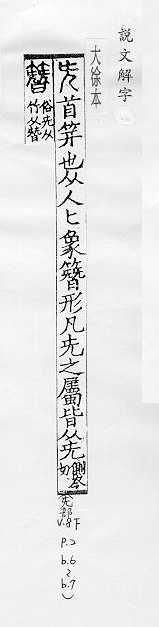 說文解字
大徐本
兂首笄也从人匕象簪形凡兂之屬皆从兂側岑切
簪俗兂从
竹从朁
(兂部
v.8下
p.2
b.6
b.7)